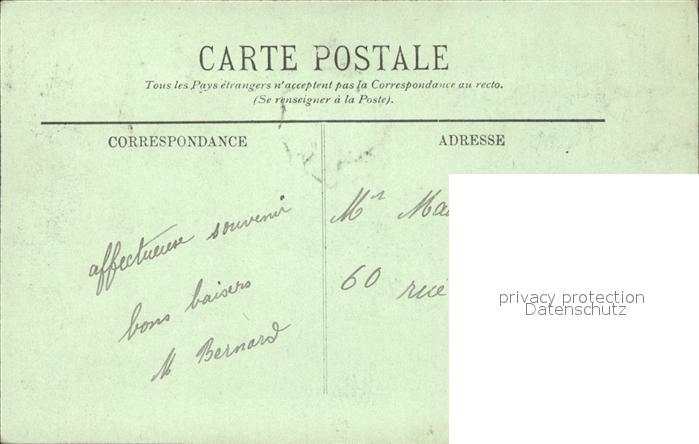 CARTE POSTALE
Tous les Pays étrangers n'acceptent pas la Correspondance au recto.
(Se renseigner à la Poste).
CORRESPONDANCE
ADRESSE
affectueuse souvenir
bons baisers
M Bernard
Mr
60 rue
privacy protection
Datenschutz